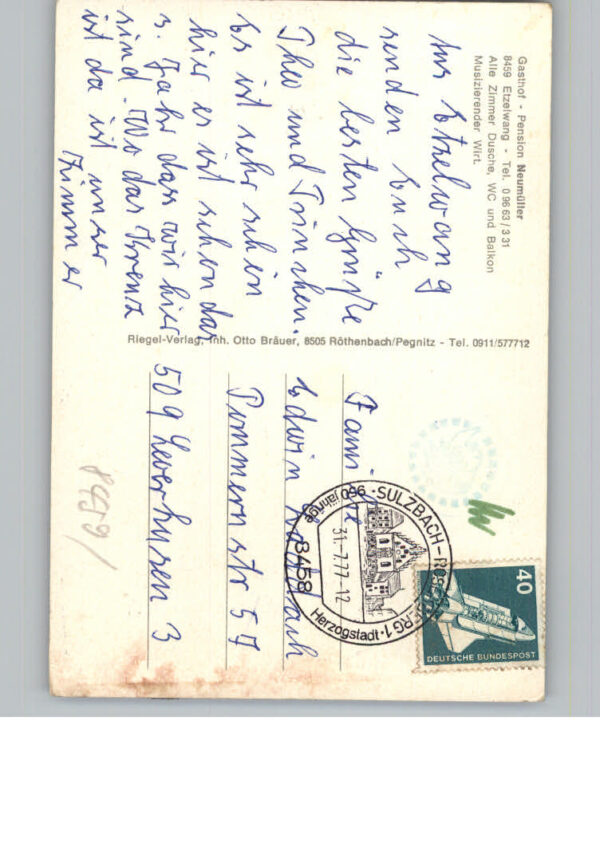 Gasthof - Pension Neumüller
8459 Etzelwang - Tel. 0 96 63 / 3 31
Alle Zimmer Dusche, WC und Balkon
Musizierender Wirt.
Aus Etzelwang
senden Euch
die besten Grüße
Theo und Trinchen.
Es ist sehr schön
hier es ist schon das
3. Jahr dass wir hier
sind. Wo das Kreuz
ist da ist unser
Zimmer
Riegel-Verlag, Inh. Otto Bräuer, 8505 Röthenbach/Pegnitz - Tel. 0911/577712
Familie
Edwin
Pommernstr 57
509 Leverkusen 3
8459/
8458 SULZBACH-ROSENBERG 1
950 jährige
Herzogstadt
31.7.77-12
40
DEUTSCHE BUNDESPOST